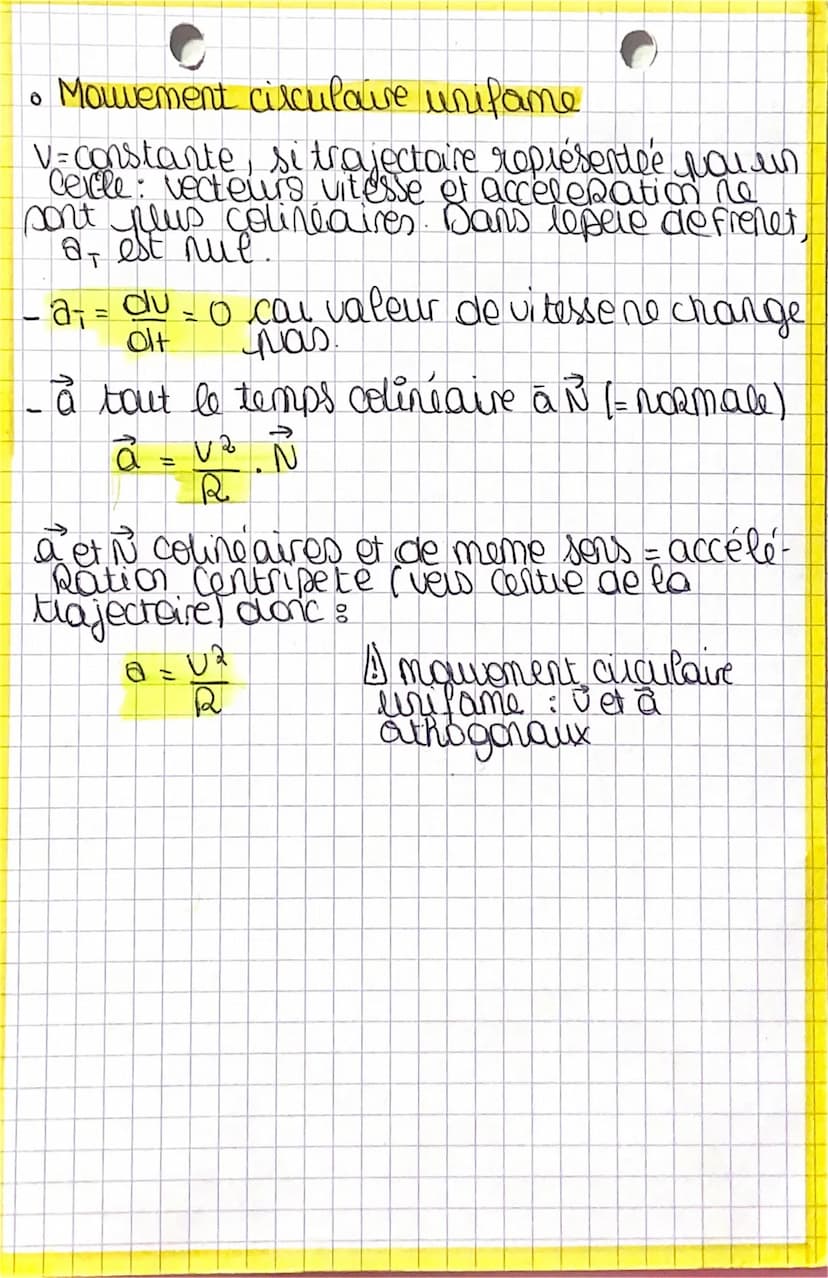 • Mouvement circulaire uniforme
V=constante, si trajectoire représentée par un
cercle : vecteurs vitesse et accéleration ne
sont plus colinéaires. Dans repère de frenet,
a_T est nul.
- a_T = dv/dt = 0 car valeur de vitesse ne change
pas.
- a⃗ tout le temps colinéaire à N⃗ (= normale)
a⃗ = v²/R . N⃗
a⃗ et N⃗ colinéaires et de meme sens = accélé-
ration centripete (vers centre de la
trajectoire) donc :
a = v²/R
⚠ mouvement circulaire
uniforme : v⃗ et a⃗
orthogonaux